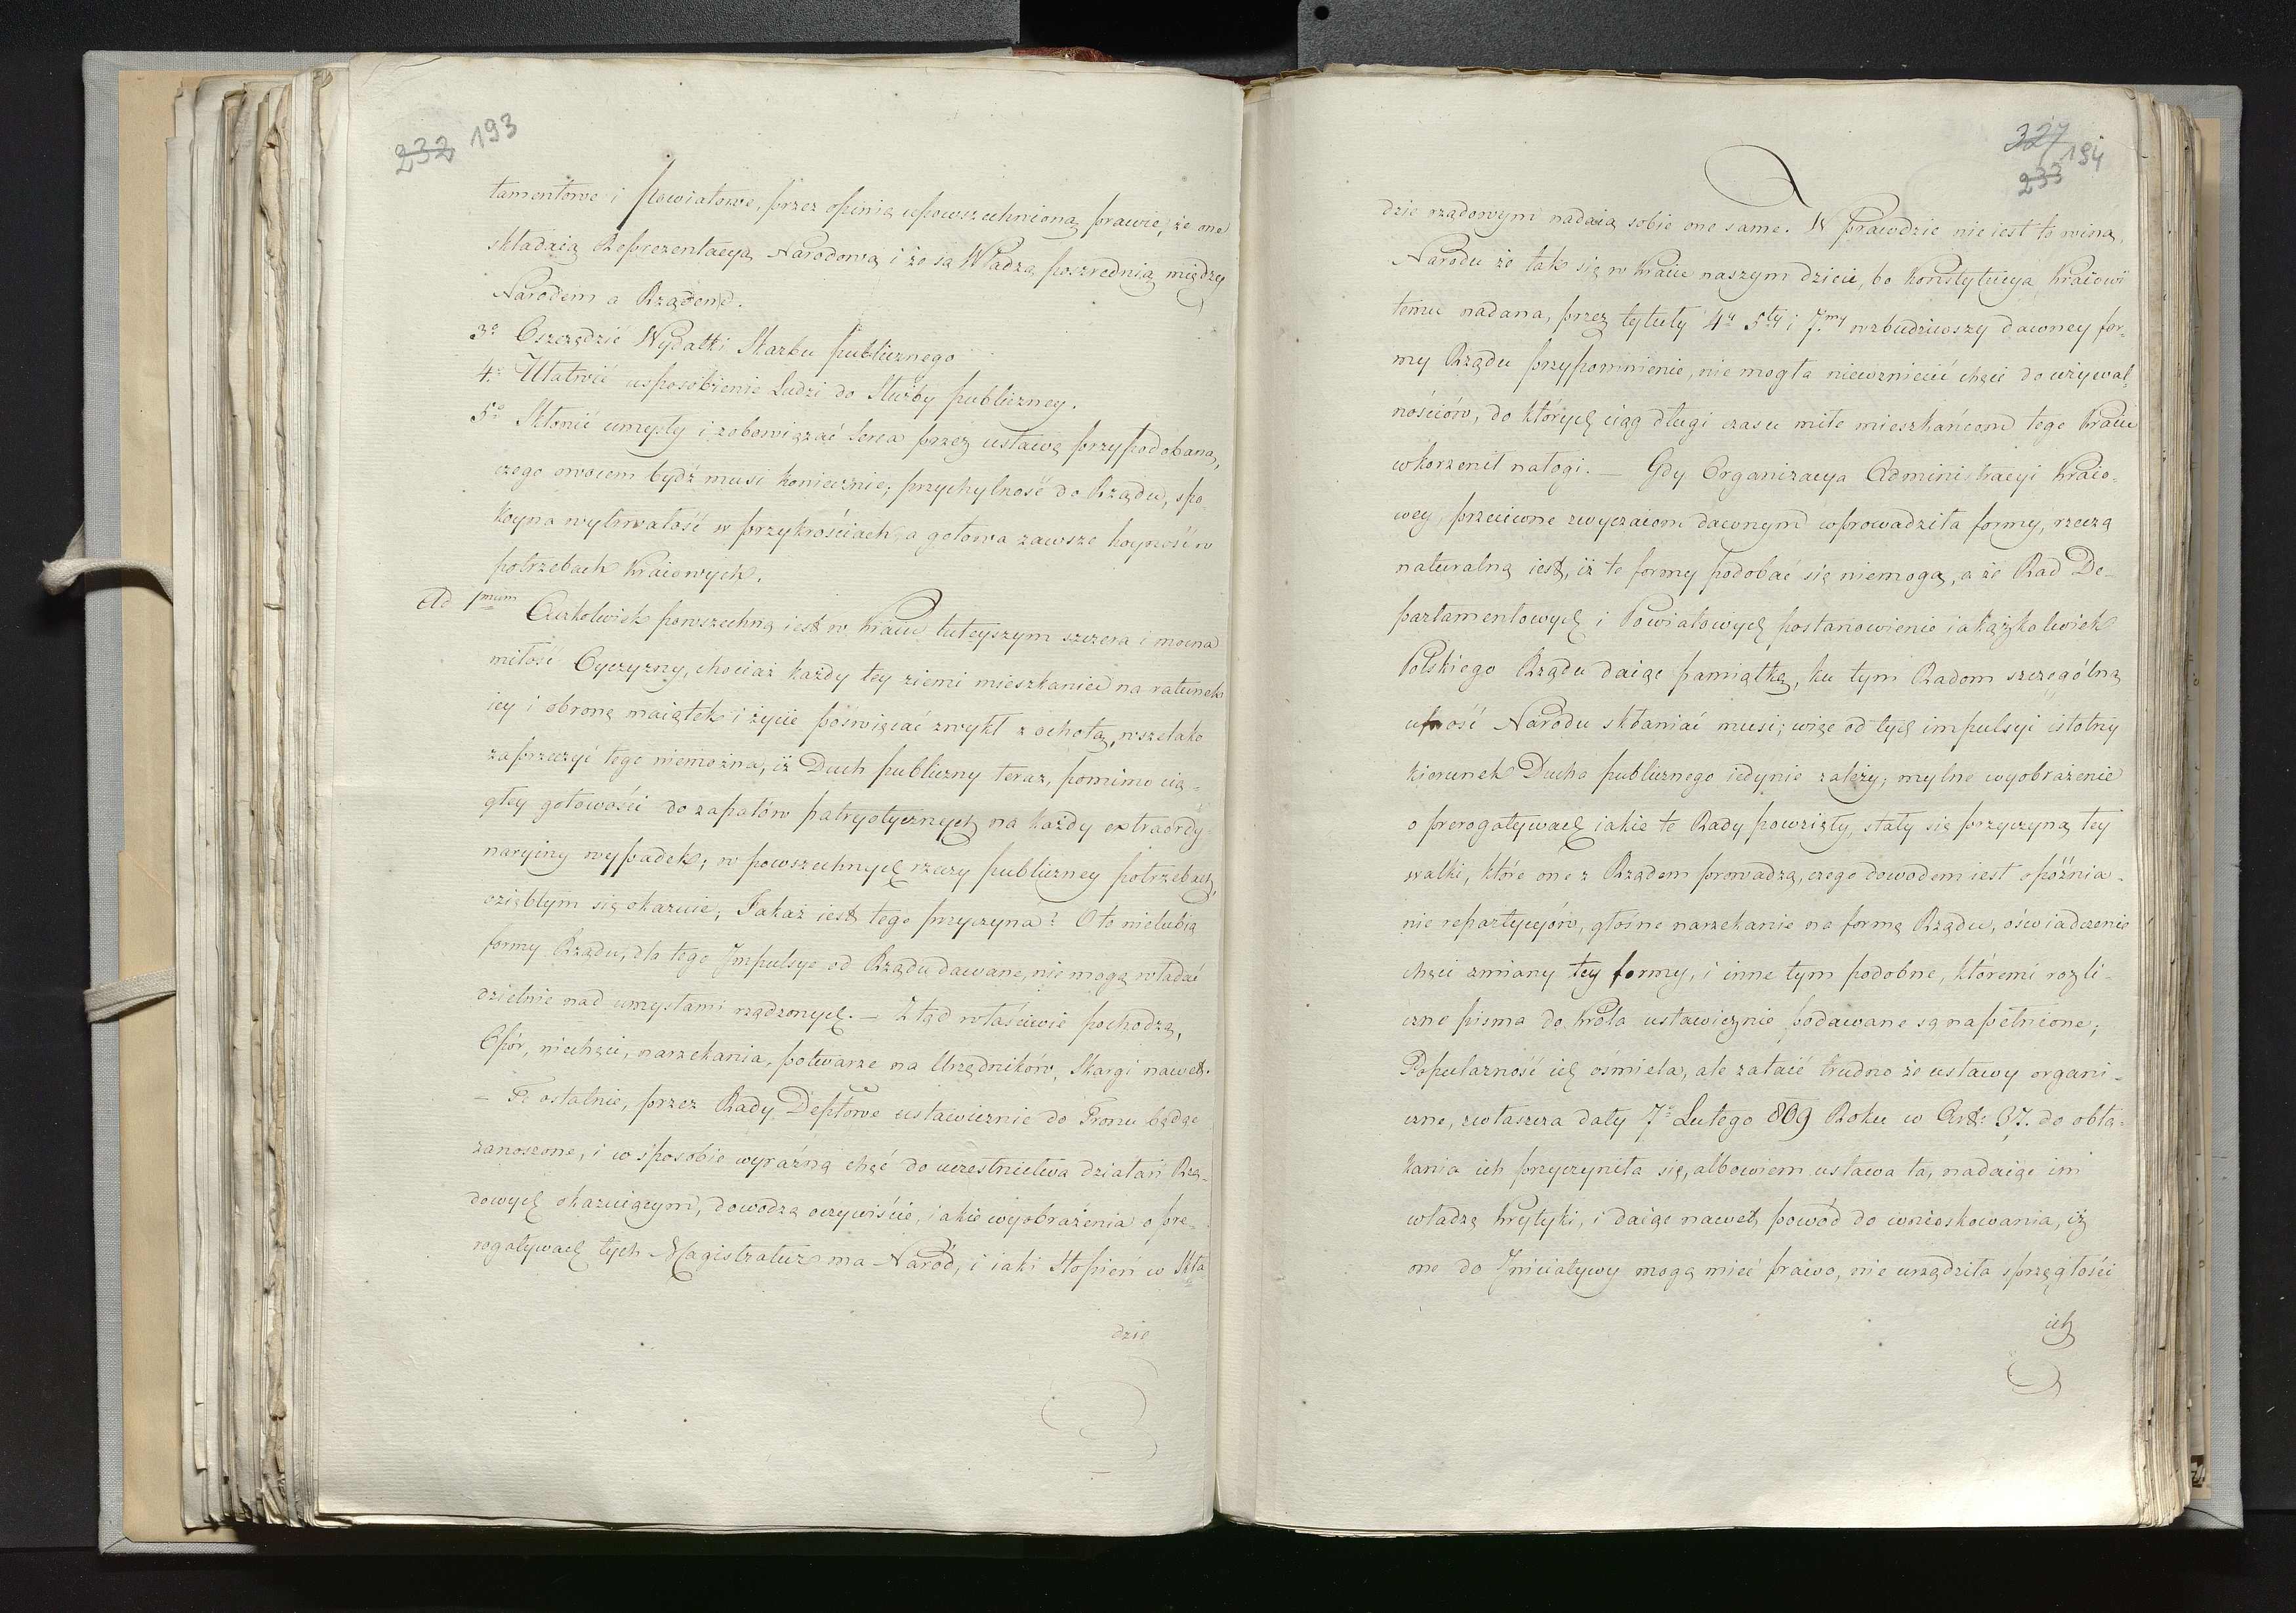 232 193
tamentowe i Powiatowe, przez opinią upowszechnioną prawie, że one
składaią Reprezentacyą Narodową i że są Władzą poszrednią między
Narodem a Rządem.
3o Oszczędzić Wydatki Skarbu publicznego
4o Ułatwić usposobienie Ludzi do Służby publiczney.
5o Skłonić umysły i zobowiązać serca przez ustawę przypodobaną,
czego owocem bydź musi koniecznie; przychylność do Rządu, spo
koyna wytrwałość w przykrościach, a gotowa zawsze hoyność w
potrzebach kraiowych.
Ad 1mum Aczkolwiek powszechną iest w kraiu tuteyszym szczera i mocna
miłość Oyczyzny, chociaż każdy tey ziemi mieszkaniec na ratunek
iey i obronę maiątek i życie poświęcać zwykł z ochotą, wszelako
zaprzeczyć tego niemożna, iż Duch publiczny teraz, pomimo cią-
głey gotowości do zapałów patryotycznych na każdy extraordy-
naryiny wypadek; w powszechnych rzeczy publiczney potrzebach,
oziębłym się okazuie; Jakaż iest tego przyczyna? Oto nielubią
formy Rządu, dla tego Jmpulsye od Rządu dawane, nie mogą władać
dzielnie nad umysłami rządzonych. - Ztąd właściwie pochodzą,
Opór, niechęci, narzekania, potwarze na Urzędników, Skargi nawet.
- Te ostatnie, przez Rady Depttowe ustawicznie do Tronu będąc
zanoszone, i w sposobie wyraźną chęć do uczestnictwa działań Rzą-
dowych okazuiącym, dowodzą oczywiście, iakie wyobrażenia o pre-
rogatywach tych Magistratur ma Naród, i iaki stopień w Skła-
dzie
327 194
233
dzie rządowym nadaią sobie one same. W prawdzie nie iest to winą,
Narodu że tak się w kraiu naszym dzieie, bo konstytucya kraiowi
temu nadana, przez tytuły 4y 5ty i 7my wzbudziwszy dawney for-
my Rządu przypomnienie, nie mogła niewzniecić chęci do używal-
nościów, do których ciąg długi czasu miłe mieszkańcom tego kraiu
wkorzenił nałogi. - Gdy Organizacya Administracyi kraio-
wey, przeciwne zwyczaiom dawnym wprowadziła formy, rzeczą
naturalną iest, iż te formy podobać się niemogą, a że Rad De-
partamentowych i Powiatowych postanowienie iakążkolwiek
Polskiego Rządu daiąc pamiątkę, ku tym Radom szczególną
ufność Narodu skłaniać musi; więc od tych impulsyi istotny
kierunek Ducha publicznego iedynie zależy; mylne wyobrażenie
o prerogatywach iakie te Rady powzięły, stały się przyczyną tey
walki, które one z Rządem prowadzą, czego dowodem iest opóźnia-
nie repartycyów, głośne narzekanie na formę Rządu, oświadczenie
chęci zmiany tey formy, i inne tym podobne, któremi rozli-
czne pisma do Króla ustawicznie podawane są napełnione;
Popularność ich ośmiela, ale zataić trudno że ustawy organi-
czne, zwłaszcza daty 7o Lutego 809 Roku w Art: 37. do obła-
kania ich przyczyniła się, albowiem ustawa ta, nadaiąc im
władzę krytyki, i daiąc nawet powód do wnioskowania, iż
one do Jniciatywy mogą mieć prawo, nie urządziła sprzęgłości
ich